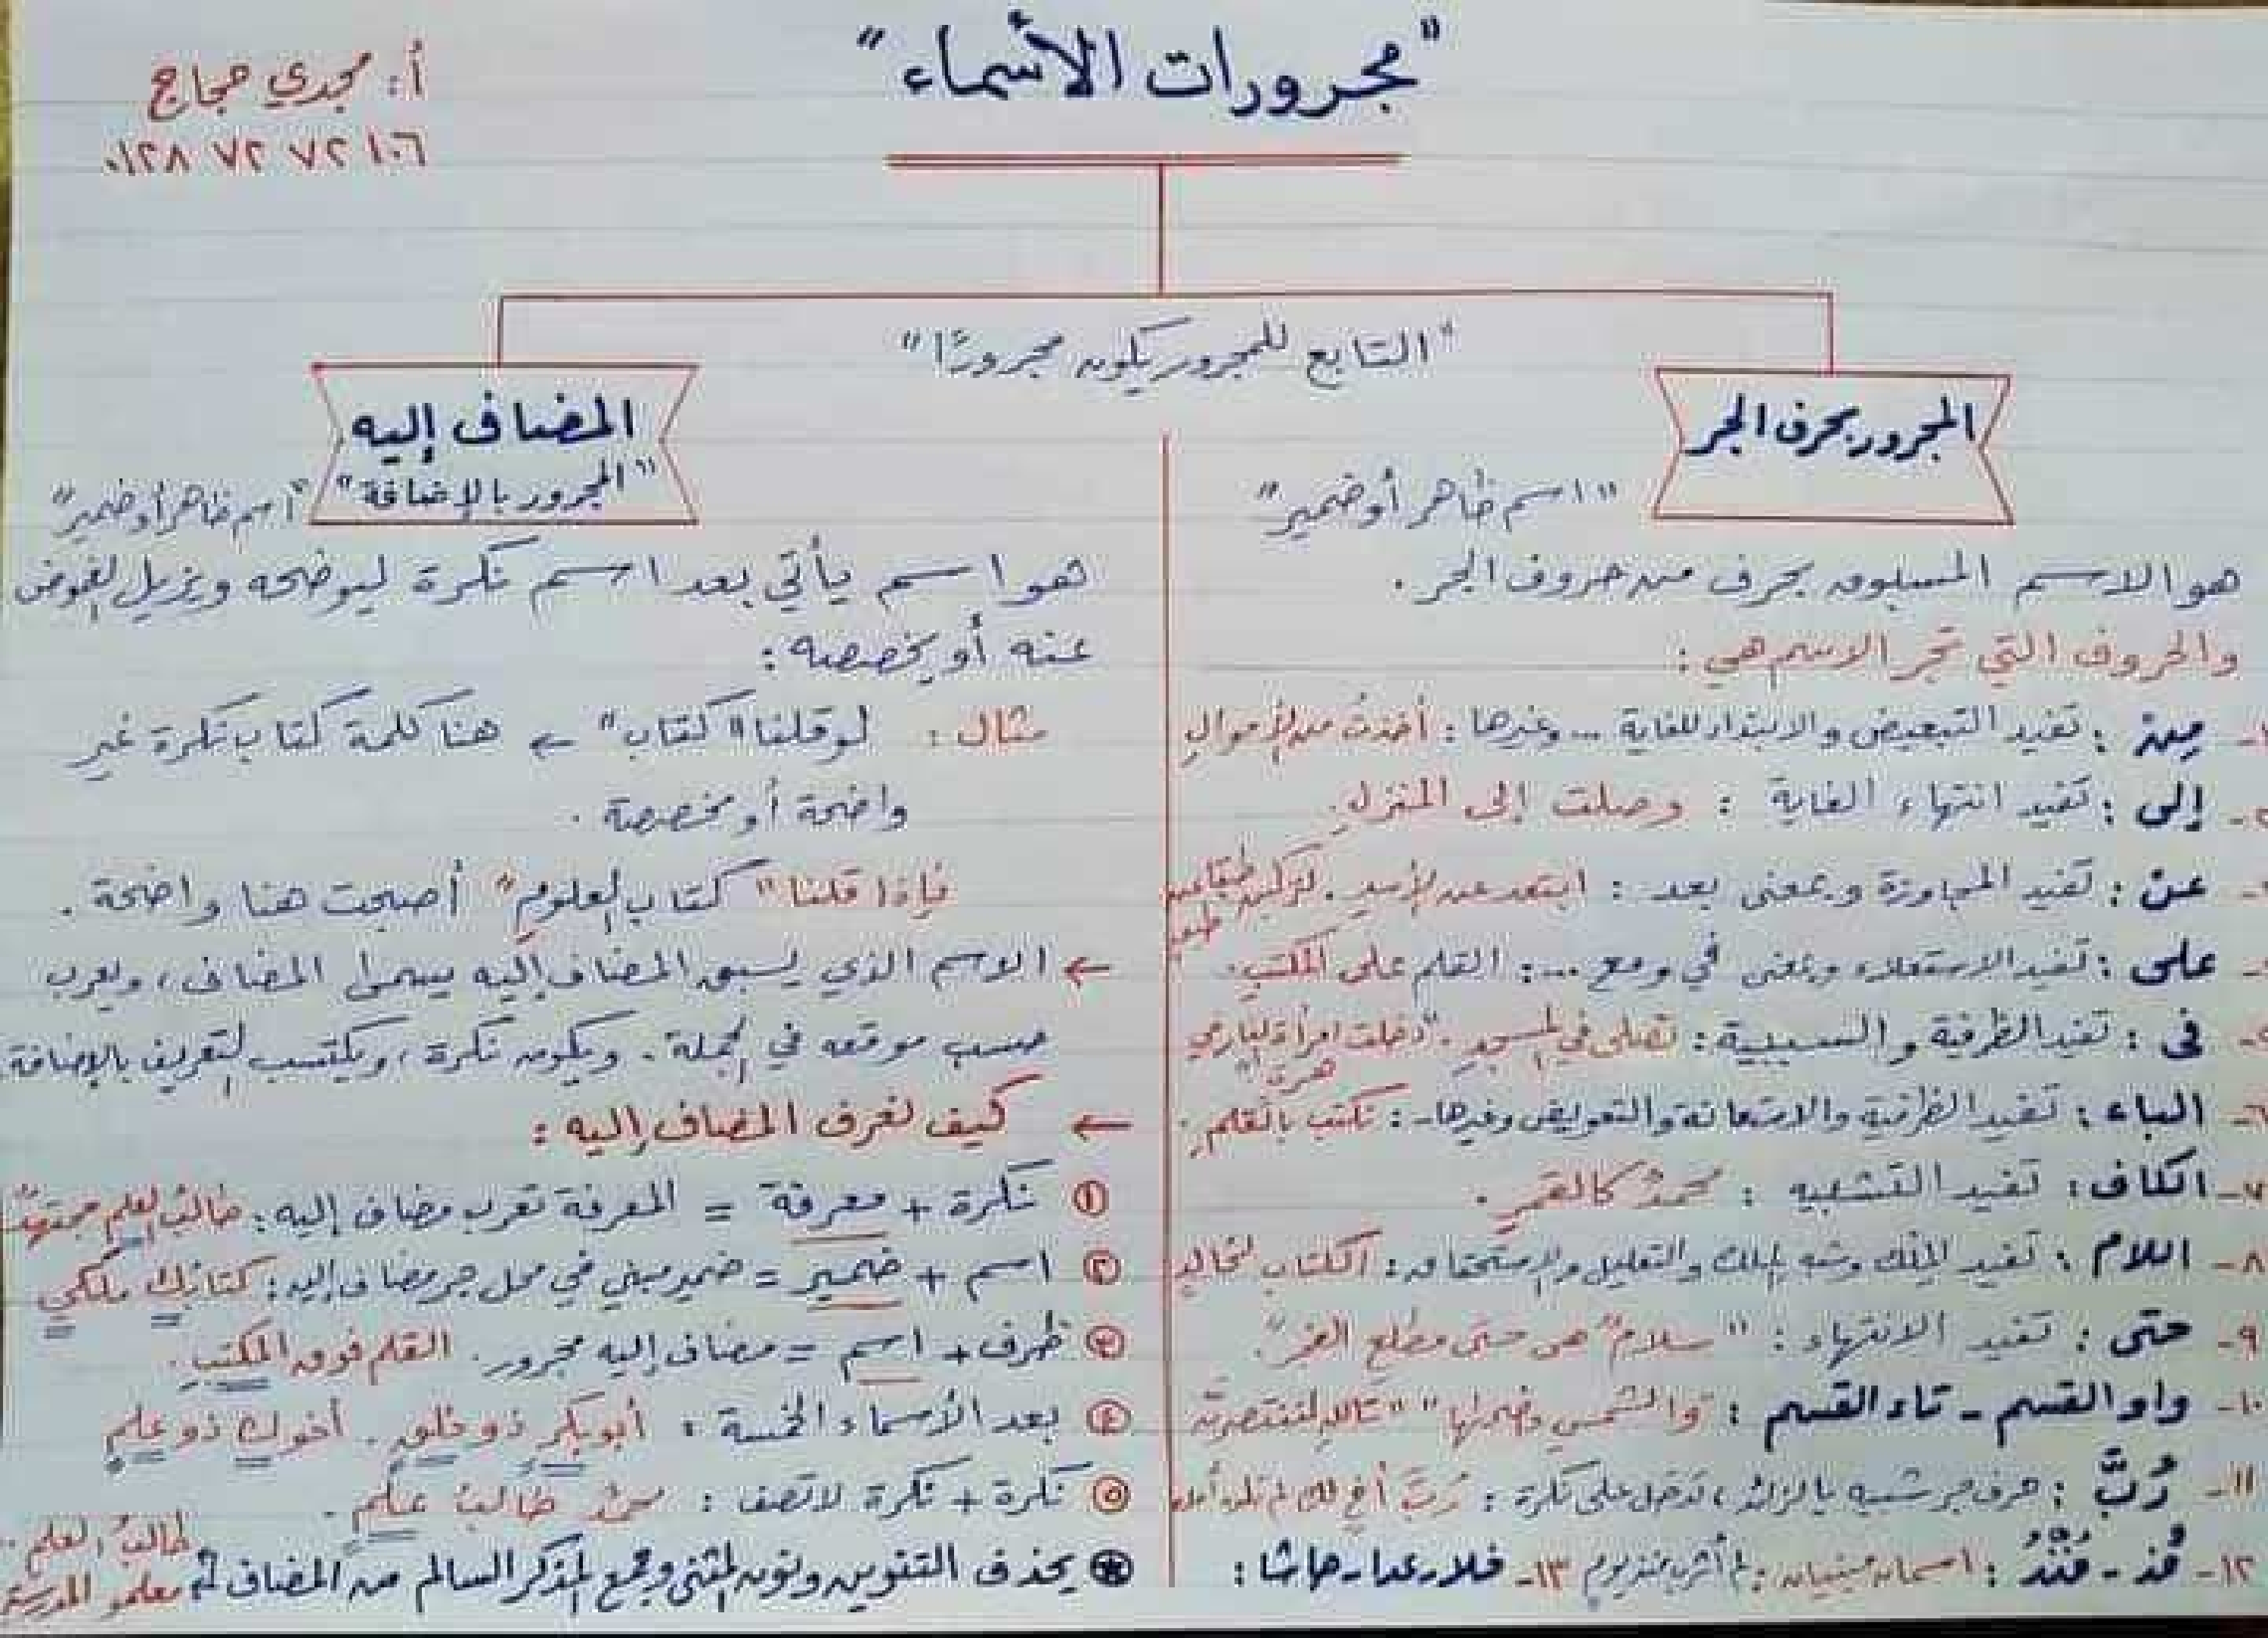 "مجرورات الأسماء"
أ: مجدي حجاج
٠١٢٨ ٧٢ ٧٢ ١٠٦
"التابع للمجرور يكون مجرورًا"
المجرور بحرف الجر
"اسم ظاهر أو ضمير"
هو الاسم المسبوق بحرف من حروف الجر.
والحروف التي تجر الاسم هي:
١- مِنْ: تفيد التبعيض والابتداء للغاية ... وغيرها: أخذتُ من الأموالِ
٢- إلى: تفيد انتهاء الغاية: وصلت إلى المنزلِ.
٣- عنْ: تفيد المجاوزة وبمعنى بعد: ابتعد عن الأسدِ. لتركبن طبقا عن
طبق
٤- على: تفيد الاستعلاء وبمعنى في ومع ...: القلم على المكتبِ.
٥- في: تفيد الظرفية والسببية: تصلى في المسجدِ. "دخلت امرأة النار في
هرة"
٦- الباء: تفيد الظرفية والاستعانة والتعويض وغيرها-: نكتب بالقلمِ.
٧- الكاف: تفيد التشبيه: محمدٌ كالقمرِ.
٨- اللام: تفيد الملك وشبه الملك والتعليل والاستحقاق: الكتاب لخالدٍ
٩- حتى: تفيد الانتهاء: "سلامٌ هى حتى مطلع الفجر".
١٠- واو القسم - تاء القسم: "والشمسِ وضحاها" "تاللهِ لننتصرنّ
١١- رُبَّ: حرف جر شبيه بالزائد، تدخل على نكرة: رُبَّ أخٍ لك لم تلده أمك
١٢- مُذ - مُنْذُ: اسمان مبنيان: لم أشربه منذ يومٍ ١٣- خلا - عدا - حاشا:
المضاف إليه
"المجرور بالإضافة"
"اسم ظاهر أو ضمير"
هو اسم يأتي بعد اسم نكرة ليوضحه ويزيل الغموض
عنه أو يخصصه:
مثال: لو قلنا "كتاب" ← هنا كلمة كتاب نكرة غير
واضحة أو مخصصة.
فإذا قلنا "كتاب العلومِ" أصبحت هنا واضحة.
← الاسم الذي يسبق المضاف إليه يسمى المضاف، ويعرب
حسب موقعه في الجملة. ويكون نكرة، ويكتسب التعريف بالإضافة
← كيف نعرف المضاف إليه:
① نكرة + معرفة = المعرفة تعرب مضاف إليه: طالبُ العلمِ مجتهدٌ
② اسم + ضمير = ضمير مبني في محل جر مضاف إليه: كتابك ملكي
③ ظرف + اسم = مضاف إليه مجرور. القلم فوق المكتبِ.
④ بعد الأسماء الخمسة: أبو بكرٍ ذو خلقٍ. أخوك ذو علمٍ
⑤ نكرة + نكرة لا تصف: محمدٌ طالبُ علمٍ.
يحذف التنوين ونون المثنى وجمع المذكر السالم من المضاف
طالبُ العلم
معلمو المدرسة